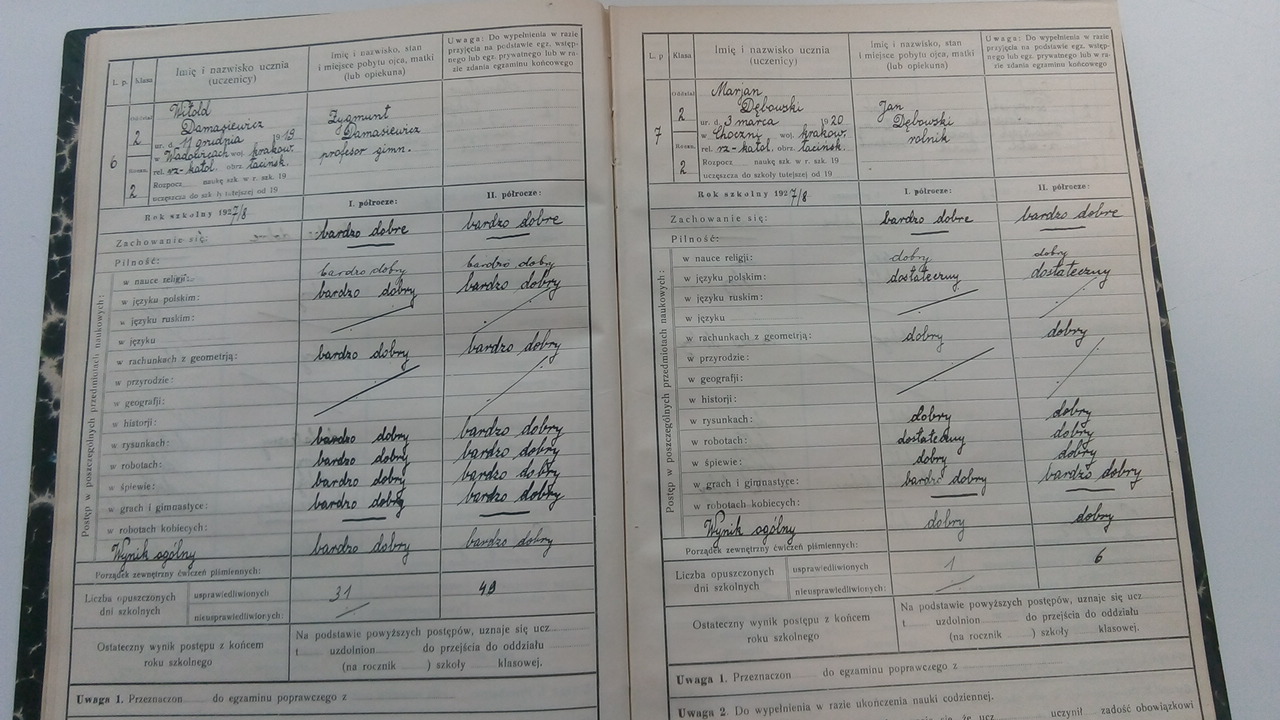 L. p.
Klasa
Imię i nazwisko ucznia
(uczenicy)
Imię i nazwisko, stan
i miejsce pobytu ojca, matki
(lub opiekuna)
Uwaga: Do wypełnienia w razie
przyjęcia na podstawie egz. wstęp-
nego lub egz. prywatnego lub w ra-
zie zdania egzaminu końcowego
6
Oddział
2
Roczn.
2
Witold
Damasiewicz
ur. d. 17 grudnia 1919
w Wadowicach woj. krakow.
rel. rz-katol. obrz. łacińsk.
Rozpocz naukę szk. w r. szk. 19
uczęszcza do szkoły tutejszej od 19
Zygmunt
Damasiewicz
profesor gimn.
Rok szkolny 1927/8
I. półrocze:
II. półrocze:
Zachowanie się: bardzo dobre bardzo dobre
Pilność:
Postęp w poszczególnych przedmiotach naukowych:
w nauce religji: bardzo dobry bardzo dobry
w języku polskim: bardzo dobry bardzo dobry
w języku ruskim:
w języku
w rachunkach z geometrją: bardzo dobry bardzo dobry
w przyrodzie:
w geografji:
w historji:
w rysunkach: bardzo dobry bardzo dobry
w robotach: bardzo dobry bardzo dobry
w śpiewie: bardzo dobry bardzo dobry
w grach i gimnastyce: bardzo dobry bardzo dobry
w robotach kobiecych:
Wynik ogólny bardzo dobry bardzo dobry
Porządek zewnętrzny ćwiczeń piśmiennych:
Liczba opuszczonych
dni szkolnych
usprawiedliwionych 31 49
nieusprawiedliwionych:
Ostateczny wynik postępu z końcem
roku szkolnego
Na podstawie powyższych postępów, uznaje się ucz
t uzdolnion do przejścia do oddziału
(na rocznik ) szkoły klasowej.
Uwaga 1. Przeznaczon do egzaminu poprawczego z
L. p
Klasa
Imię i nazwisko ucznia
(uczenicy)
Imię i nazwisko, stan
i miejsce pobytu ojca, matki
(lub opiekuna)
Uwaga: Do wypełnienia w razie
przyjęcia na podstawie egz. wstęp-
nego lub egz. prywatnego lub w ra-
zie zdania egzaminu końcowego
7
Oddział
2
Roczn.
2
Marjan
Dębowski
ur. d. 3 marca 1920
w Choczni woj. krakow.
rel. rz-katol. obrz. łacińsk.
Rozpocz naukę szk. w r. szk. 19
uczęszcza do szkoły tutejszej od 19
Jan
Dębowski
rolnik
Rok szkolny 1927/8
I. półrocze:
II. półrocze:
Zachowanie się: bardzo dobre bardzo dobre
Pilność:
Postęp w poszczególnych przedmiotach naukowych:
w nauce religji: dobry dobry
w języku polskim: dostateczny dostateczny
w języku ruskim:
w języku
w rachunkach z geometrją: dobry dobry
w przyrodzie:
w geografji:
w historji:
w rysunkach: dobry dobry
w robotach: dostateczny dobry
w śpiewie: dobry dobry
w grach i gimnastyce: bardzo dobry bardzo dobry
w robotach kobiecych:
Wynik ogólny dobry dobry
Porządek zewnętrzny ćwiczeń piśmiennych:
Liczba opuszczonych
dni szkolnych
usprawiedliwionych 1 6
nieusprawiedliwionych:
Ostateczny wynik postępu z końcem
roku szkolnego
Na podstawie powyższych postępów, uznaje się ucz
t uzdolnion do przejścia do oddziału
(na rocznik ) szkoły klasowej.
Uwaga 1. Przeznaczon do egzaminu poprawczego z
Uwaga 2. Do wypełnienia w razie ukończenia nauki codziennej.
że ucz uczynił zadość obowiązkowi